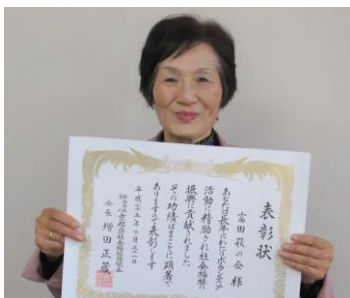 表彰状
富田 荻の会 様
あなたは長年にわたりボランティア
活動に精励され社会福祉の
振興に貢献されました
その功績はまことに顕著で
ありますので表彰します
平成二十五年十月三十一日
会長 増田正蔵